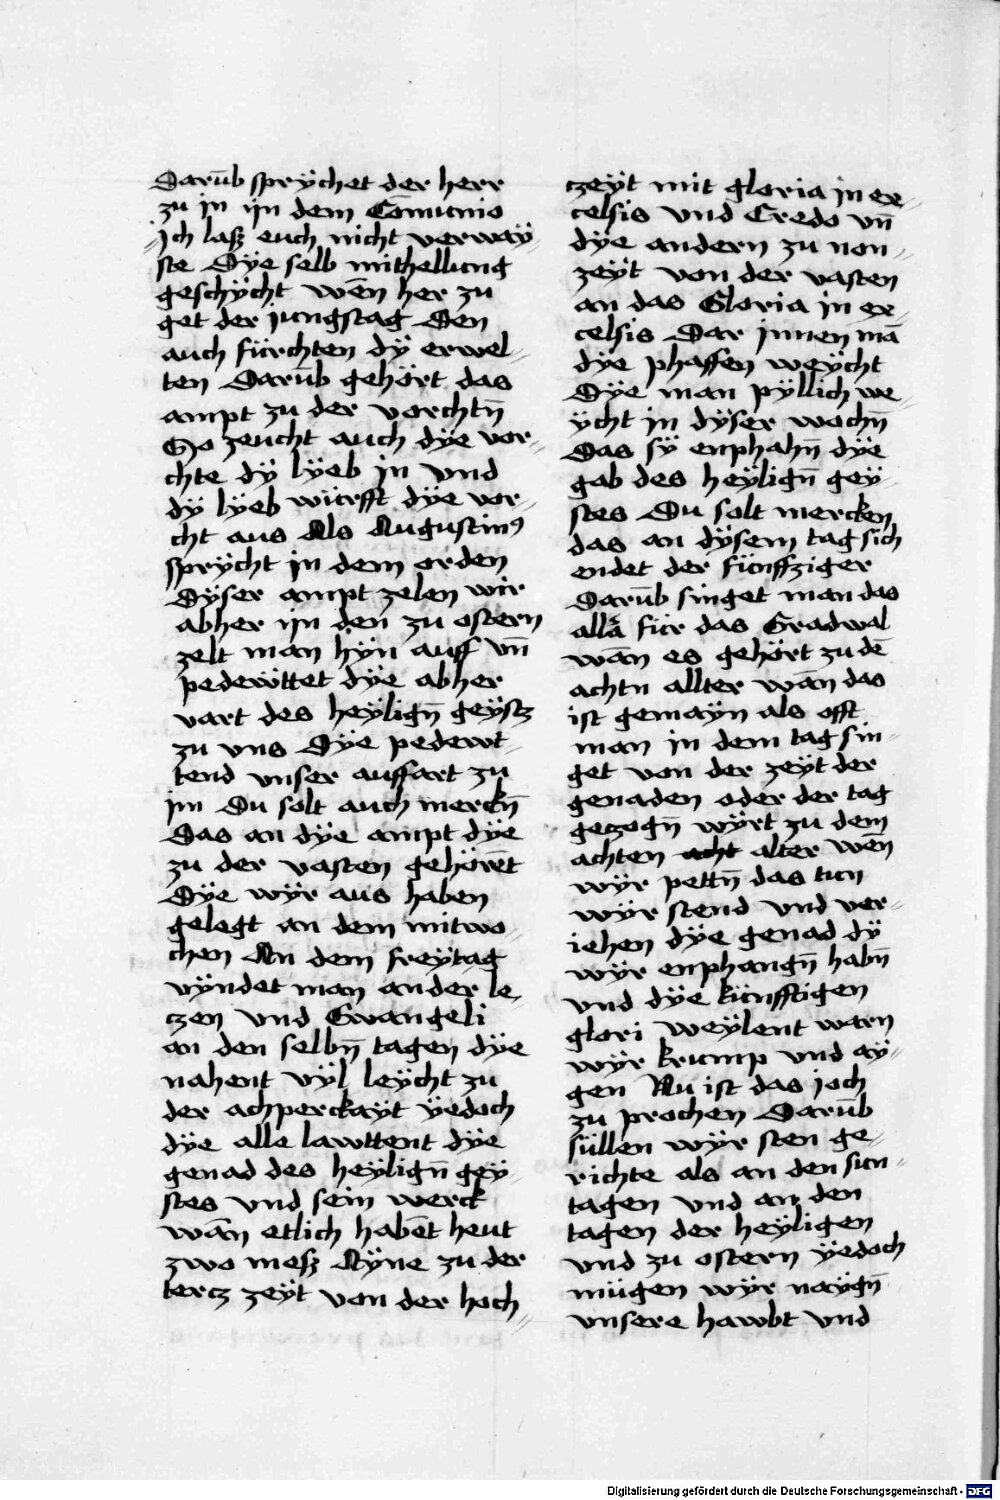 Darūb sprÿchet der herr
zu in ÿn dem Comunio
Jch laß euch nicht verwaÿ⸗
ste Dÿe selb mithellung
geschÿcht wēn her zu
get der jungstag Den
auch fürchten dÿ erwel⸗
ten Darūb gehört das
ampt zu der vorchtn̄
So zeucht auch dÿe vor⸗
chte dÿ lÿeb in Vnd
dÿ lÿeb würfft dÿe vor⸗
cht aus Als Augustinꝰ
sprÿcht in dem orden
Dÿser ampt zelen wir
abher ÿn den zu ostern
zelt man hÿn auff vn̄
pedewttet dÿe abher
vart des heÿlign̄ geÿstz
zu vns Dÿe pedewt⸗
tend vnser auffart zu
im Du solt auch merckn̄
Das an dÿe ampt dÿe
zu der vasten gehörēt
Dÿe wÿr aus haben
gelegt an dem mitwo⸗
chen An dem freÿtag
vÿndet man an der le⸗
czen Vnd Ewangeli
an den selbn̄ tagen dÿe
nahent vÿl leÿcht zu
der achperckaÿt ÿedoch
dÿe alle lawttent dÿe
genad des heÿlign̄ geÿ⸗
stes Vnd sein werck
wān etlich habēt heut
zwo meß Aÿne zu der
tercz zeÿt von der hoch⸗
czeÿt mit gloria in ex⸗
celsis Vnd Credo vn̄
dÿe andern zu non⸗
zeÿt von der vasten
an das Gloria in ex⸗
celsis Dar innen mā
dÿe phaffen weÿcht
Dÿe man pÿllich we⸗
ÿcht in dÿser wochn̄
Das sÿ enphahn̄ dÿe
gab des heÿlign̄ geÿ⸗
stes Du solt mercken
das an dÿsem tag sich
endet der fünffziger
Darūb singet man das
allā für das Gradwal
wān es gehört zu dē
achtn allter wān das
ist gemaÿn als offt
man in dem tag sin⸗
get von der zeÿt der
genaden oder der tag
geczogn̄ wÿrt zu dem
achten acht alter wēn
wÿr pettn̄ das tun
wÿr stend Vnd ver⸗
iehen dÿe genad dÿ
wÿr enphangn̄ habn̄
Vnd dÿe künfftigen
glori weÿlent warn
wÿr krump Vnd aÿ⸗
gen Nu ist das joch
zu prochen Darūb
süllen wÿr sten ge⸗
richte als an den sun⸗
tagen Vnd an den
tagen der heÿligen
Vnd zu ostern ÿedoch
mügen wÿr naÿgn̄
vnsere hawbt Vnd
Digitalisierung gefördert durch die Deutsche Forschungsgemeinschaft - DFG